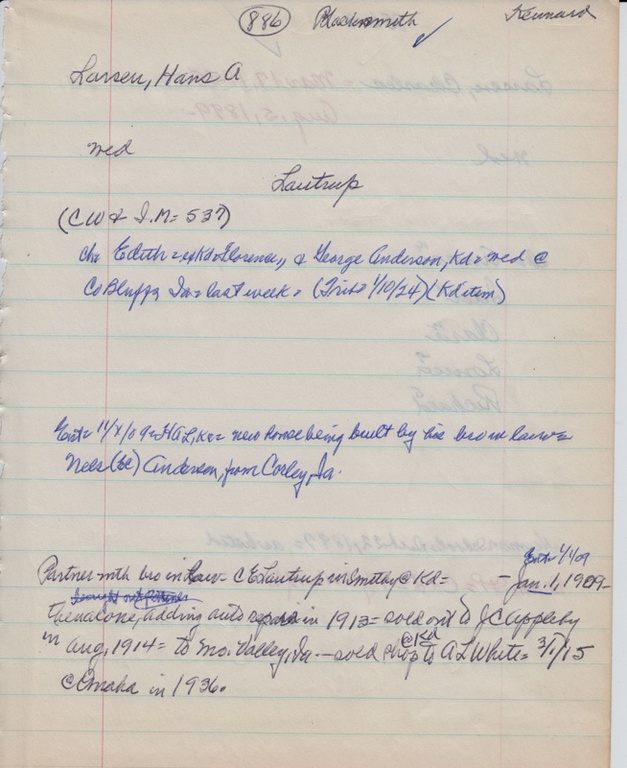 886 Blacksmith Kennard
Larsen, Hans A
med
Lautrup
(CW & I.M= 537)
ch= Edith = Kd = Florence,, & George Anderson, Kd = med @
Co Bluffs, Ia = last week = (Trib= 1/10/24) (Kd item)
Ent= 11/ /09 = HAL, Ke = new house being built by his bro in law =
Nels Anderson, from Corley, Ia.
Ent= 1/1/09
Partner with bro in law = C E Lautrup in Smithy @ Kd = - Jan. 1, 1909-
then alone, adding auto repair in 1913 = sold out to J C Appleby
in Aug, 1914 = to Mo. Valley, Ia — sold shop @ Kd to A L White = 3/1/15
@ Omaha in 1936.